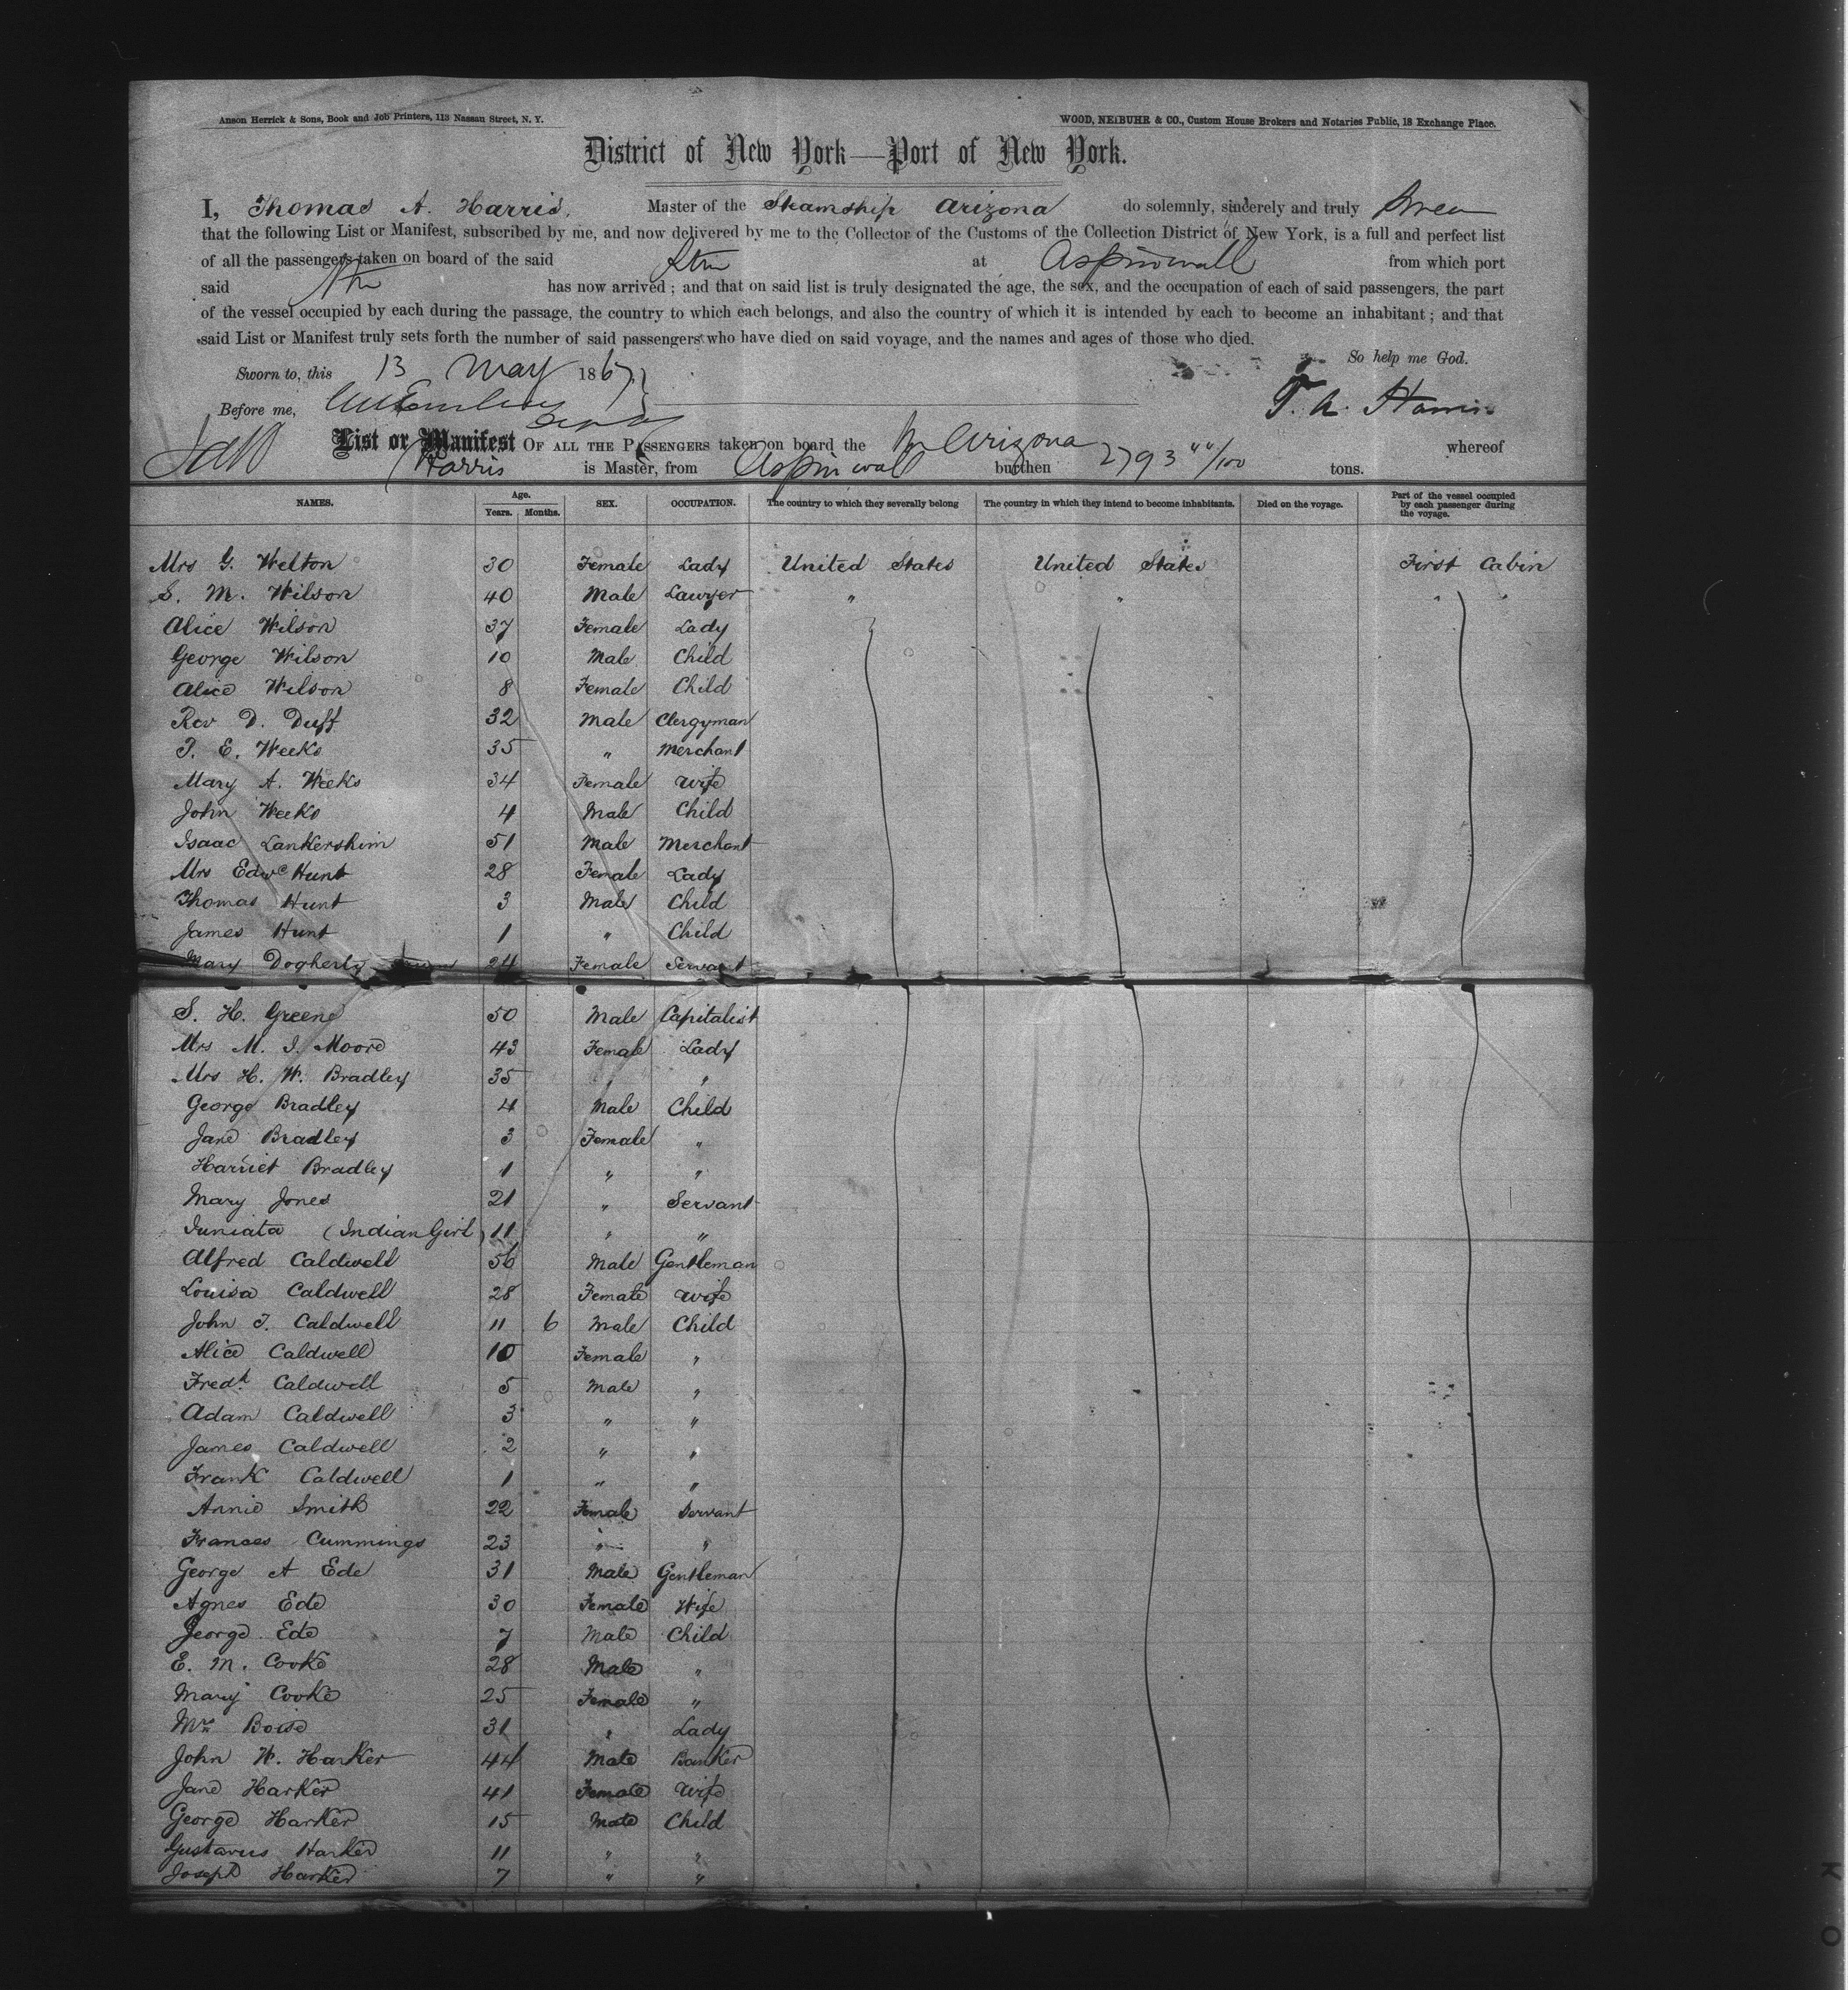 Anson Herrick & Sons, Book and Job Printers, 113 Nassau Street, N. Y. WOOD, NEIBUHR & CO., Custom House Brokers and Notaries Public, 18 Exchange Place.
District of New York—Port of New York.
I, Thomas A. Harris, Master of the Steamship Arizona do solemnly, sincerely and truly Swear
that the following List or Manifest, subscribed by me, and now delivered by me to the Collector of the Customs of the Collection District of New York, is a full and perfect list
of all the passengers taken on board of the said Str at Aspinwall from which port
said Str has now arrived; and that on said list is truly designated the age, the sex, and the occupation of each of said passengers, the part
of the vessel occupied by each during the passage, the country to which each belongs, and also the country of which it is intended by each to become an inhabitant; and that
said List or Manifest truly sets forth the number of said passengers who have died on said voyage, and the names and ages of those who died.
So help me God.
Sworn to, this 13 May 1867.
Before me, T. A. Harris
List or Manifest OF ALL THE PASSENGERS taken on board the Arizona whereof
Harris is Master, from Aspinwall burthen 2793 44/100 tons.
NAMES. Age. Years. Months. SEX. OCCUPATION. The country to which they severally belong The country in which they intend to become inhabitants. Died on the voyage. Part of the vessel occupied by each passenger during the voyage.
Mrs G. Welton 30 Female Lady United States United States First Cabin
S. M. Wilson 40 Male Lawyer " " " "
Alice Wilson 37 Female Lady
George Wilson 10 Male Child
Alice Wilson 8 Female Child
Rev D. Duff 32 Male Clergyman
T. E. Weeks 35 " Merchant
Mary A. Weeks 34 Female Wife
John Weeks 4 Male Child
Isaac Lankershim 51 Male Merchant
Mrs Edwd Hunt 28 Female Lady
Thomas Hunt 3 Male Child
James Hunt 1 " Child
Mary Dogherty 24 Female Servant
S. H. Greene 50 Male Capitalist
Mrs M. J. Moore 43 Female Lady
Mrs H. W. Bradley 35 " "
George Bradley 4 Male Child
Jane Bradley 3 Female "
Harriet Bradley 1 " "
Mary Jones 21 " Servant
Juniata (Indian Girl) 11 " "
Alfred Caldwell 56 Male Gentleman
Louisa Caldwell 28 Female Wife
John T. Caldwell 11 6 Male Child
Alice Caldwell 10 Female "
Fredk Caldwell 5 Male "
Adam Caldwell 3 " "
James Caldwell 2 " "
Frank Caldwell 1 " "
Annie Smith 22 Female Servant
Frances Cummings 23 " "
George A Ede 31 Male Gentleman
Agnes Ede 30 Female Wife
George Ede 7 Male Child
E. M. Cooke 28 Male "
Mary Cooke 25 Female "
Mrs Boise 31 " Lady
John W. Harker 44 Male Banker
Jane Harker 41 Female Wife
George Harker 15 Male Child
Gustavus Harker 11 " "
Joseph Harker 7 " "